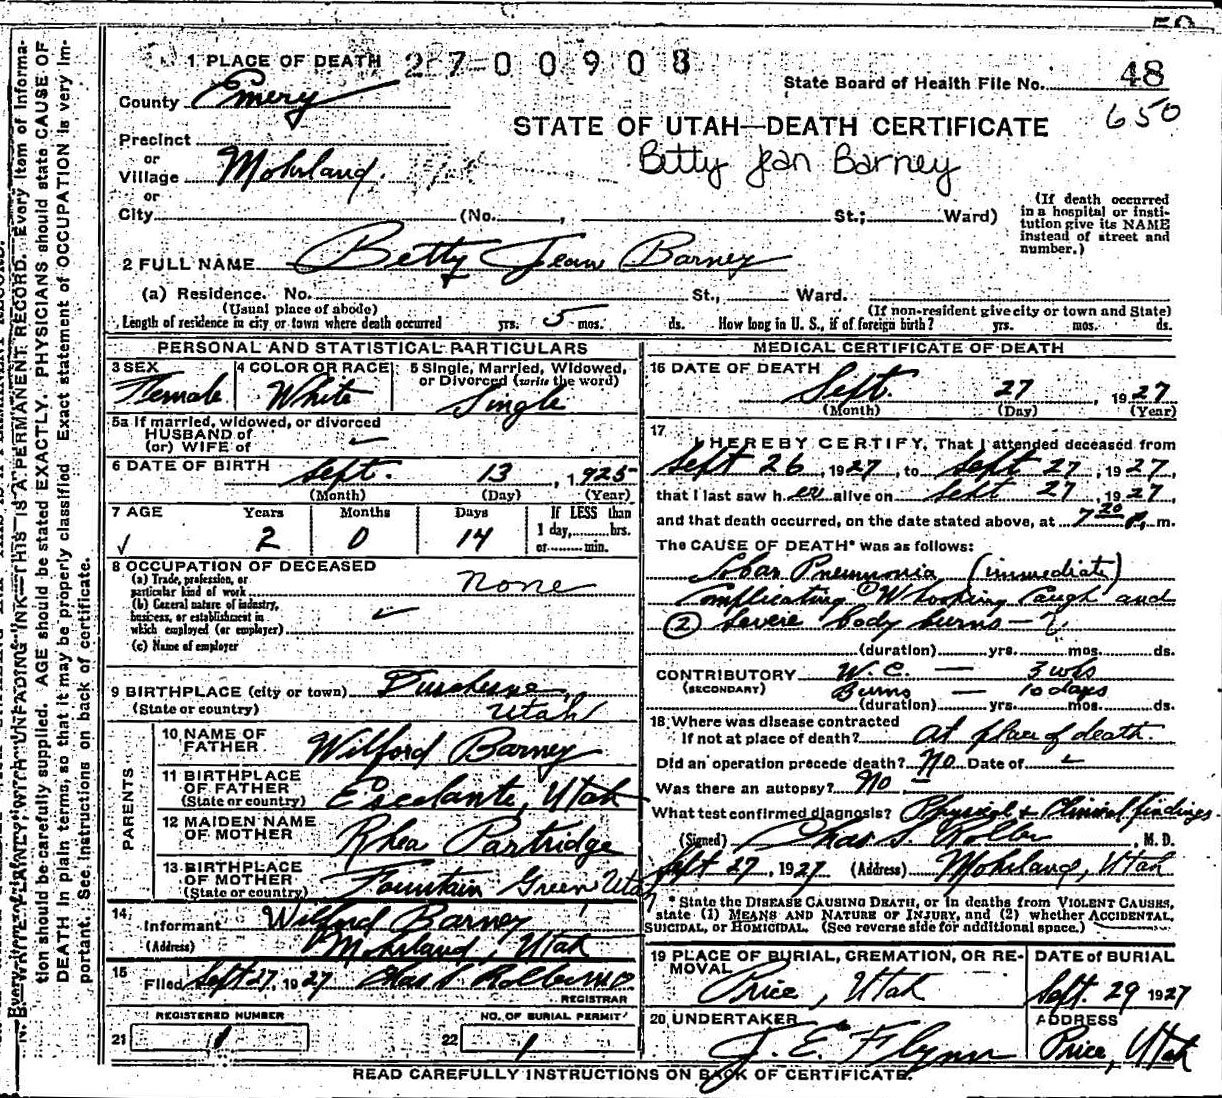 50
1 PLACE OF DEATH 27-00903
State Board of Health File No. 48
650
County Emery
STATE OF UTAH—DEATH CERTIFICATE
Betty Jean Barney
Precinct
or
Village Mohrland.
or
City (No. , St.; Ward)
(If death occurred
in a hospital or insti-
tution give its NAME
instead of street and
number.)
2 FULL NAME Betty Jean Barney
(a) Residence. No. St., Ward.
(Usual place of abode) (If non-resident give city or town and State)
Length of residence in city or town where death occurred yrs. 5 mos. ds. How long in U. S., if of foreign birth? yrs. mos. ds.
PERSONAL AND STATISTICAL PARTICULARS
3 SEX Female
4 COLOR OR RACE White
5 Single, Married, Widowed,
or Divorced (write the word)
Single
5a If married, widowed, or divorced
HUSBAND of
(or) WIFE of
6 DATE OF BIRTH Sept. 13, 1925
(Month) (Day) (Year)
7 AGE Years Months Days If LESS than
1 day, hrs.
or min.
2 0 14
8 OCCUPATION OF DECEASED
(a) Trade, profession, or
particular kind of work none
(b) General nature of industry,
business, or establishment in
which employed (or employer)
(c) Name of employer
9 BIRTHPLACE (city or town) Duchesne,
(State or country) Utah
PARENTS
10 NAME OF
FATHER Wilford Barney
11 BIRTHPLACE
OF FATHER
(State or country) Escalante, Utah
12 MAIDEN NAME
OF MOTHER Rhea Partridge
13 BIRTHPLACE
OF MOTHER
(State or country) Fountain Green Utah
14 Informant Wilford Barney
(Address) Mohrland, Utah
15 Filed Sept 27, 1927
REGISTRAR
REGISTERED NUMBER
21 1
NO. OF BURIAL PERMIT
22 1
MEDICAL CERTIFICATE OF DEATH
16 DATE OF DEATH
Sept. 27, 1927
(Month) (Day) (Year)
17
I HEREBY CERTIFY, That I attended deceased from
Sept 26, 1927, to Sept 27, 1927,
that I last saw her alive on Sept 27, 1927
and that death occurred, on the date stated above, at 7 20 P. m.
The CAUSE OF DEATH* was as follows:
Lobar Pneumonia (immediate)
Complicating ① Whooping Cough and
② Severe body burns
(duration) yrs. mos. ds.
CONTRIBUTORY W.C. — 3 wks
(SECONDARY) Burns — 10 days
(duration) yrs. mos. ds.
18 Where was disease contracted
If not at place of death? At place of death.
Did an operation precede death? No Date of
Was there an autopsy? No
What test confirmed diagnosis? Physical & Clinical findings.
(Signed) Chas S. M. D.
Sept 27, 1927 (Address) Mohrland, Utah
* State the DISEASE CAUSING DEATH, or in deaths from VIOLENT CAUSES,
state (1) MEANS AND NATURE OF INJURY, and (2) whether ACCIDENTAL,
SUICIDAL, or HOMICIDAL. (See reverse side for additional space.)
19 PLACE OF BURIAL, CREMATION, OR RE-
MOVAL
Price, Utah
DATE of BURIAL
Sept. 29 1927
20 UNDERTAKER
J. E. Flynn
ADDRESS
Price, Utah
READ CAREFULLY INSTRUCTIONS ON BACK OF CERTIFICATE.
N. B. WRITE PLAINLY, WITH UNFADING INK—THIS IS A PERMANENT RECORD. Every item of informa-
tion should be carefully supplied. AGE should be stated EXACTLY. PHYSICIANS should state CAUSE OF
DEATH in plain terms, so that it may be properly classified. Exact statement of OCCUPATION is very im-
portant. See instructions on back of certificate.